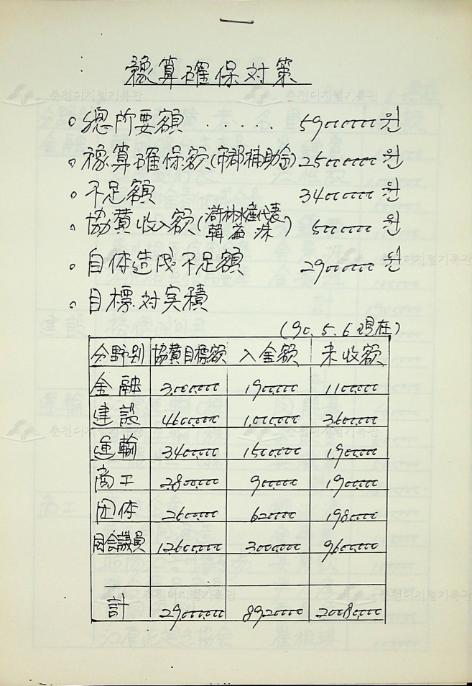 豫算確保対策
○ 總所要額 ..... 59,000,000원
○ 豫算確保額(市郡補助金) 25,000,000원
○ 不足額 34,000,000원
○ 協賛収入額(林水産代表 韓益洙) 5,000,000원
○ 自体造成不足額 29,000,000원
○ 目標対実積
(90. 5. 6 現在)
分野別 協賛目標額 入金額 未收額
金融 3,000,000 1,900,000 1,100,000
建設 4,600,000 1,000,000 3,600,000
運輸 3,400,000 1,500,000 1,900,000
商工 2,800,000 900,000 1,900,000
団体 2,600,000 620,000 1,980,000
国会議員 12,600,000 3,000,000 9,600,000
計 29,000,000 8,920,000 20,080,000
춘천디지털기록관